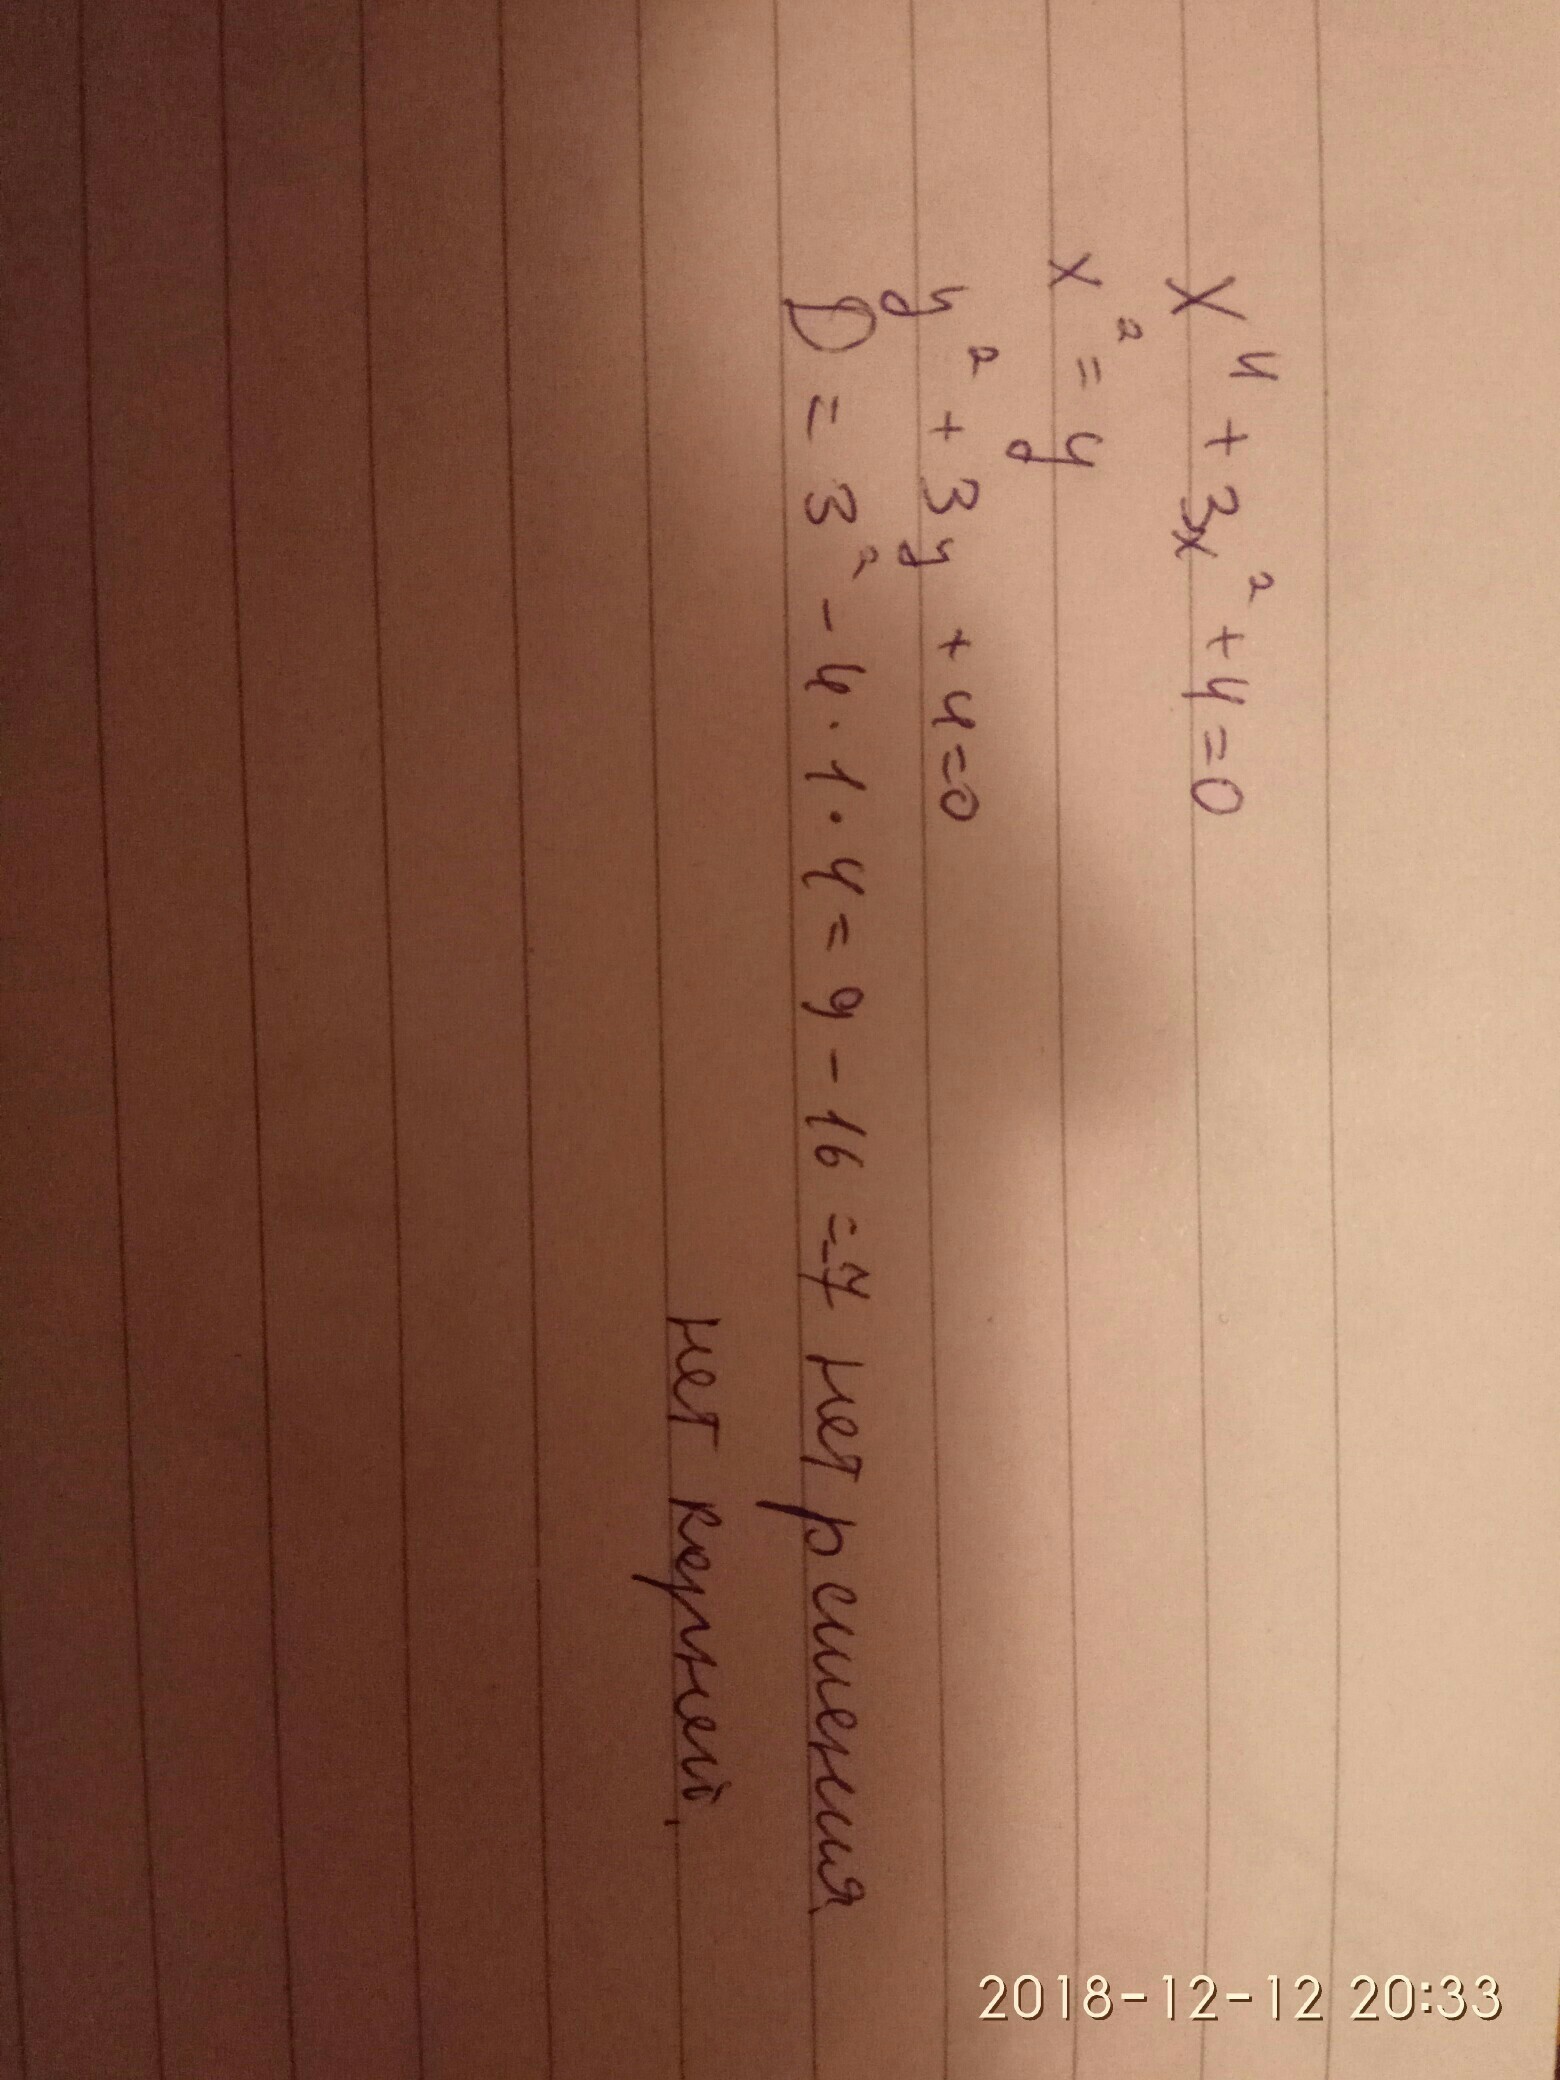 x⁴ + 3x² + 4 = 0
x² = y
y² + 3y + 4 = 0
D = 3² - 4 · 1 · 4 = 9 - 16 = -7 нет решения
нет керней.
2018-12-12 20:33